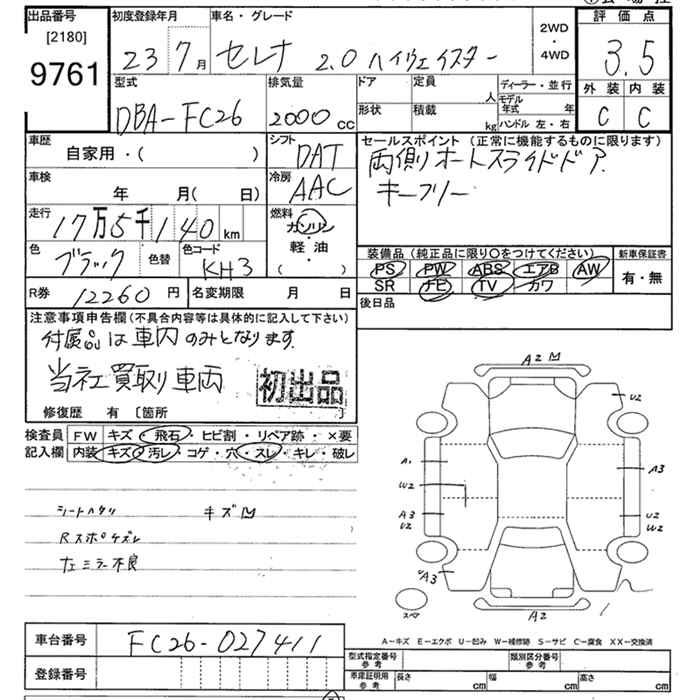 出品番号 初度登録年月 車名・グレード 2WD 評価点
[2180] ・
9761 23 7月 セレナ 2.0 ハイウェイスター 4WD 3.5
型式 排気量 ドア 定員 ディーラー・並行 外装 内装
人 モデル年式 年
DBA-FC26 2000cc 形状 積載 kg ハンドル 左・右 C C
車歴 シフト セールスポイント (正常に機能するものに限ります)
自家用・( ) DAT 両側オートスライドドア
車検 冷房 キーフリー
年 月( 日) AAC
走行 燃料
17万5千140km ガソリン
色 ブラック 色替 色コード KH3 軽油 ( ) 装備品(純正品に限り〇をつけてください) 新車保証書
PS PW ABS エアB AW 有・無
SR FE TV カワ
R券 12260円 名変期限 月 日 後日品
注意事項申告欄(不具合内容等は具体的に記入して下さい)
付属品は車内のみとなります
当社買取り車両 初出品
修復歴 有 〔箇所 〕
検査員 FW キズ・飛石・ヒビ割・リペア跡・×要
記入欄 内装 キズ・汚レ・コゲ・穴・スレ・キレ・破レ
A2 U2
A1 A3
W2
A3 U2 U2 W2
シートヘタリ キズ
Rスポイズレ
左ミラー不良
A3
スペア A2
A-キズ E-エクボ U-凹み W-補修跡 S-サビ C-腐食 XX-交換済
車台番号 FC26-027411 型式指定番号 参考 類別区分番号 参考
登録番号 車庫証明用 参考 長さ cm 幅 cm 高さ cm